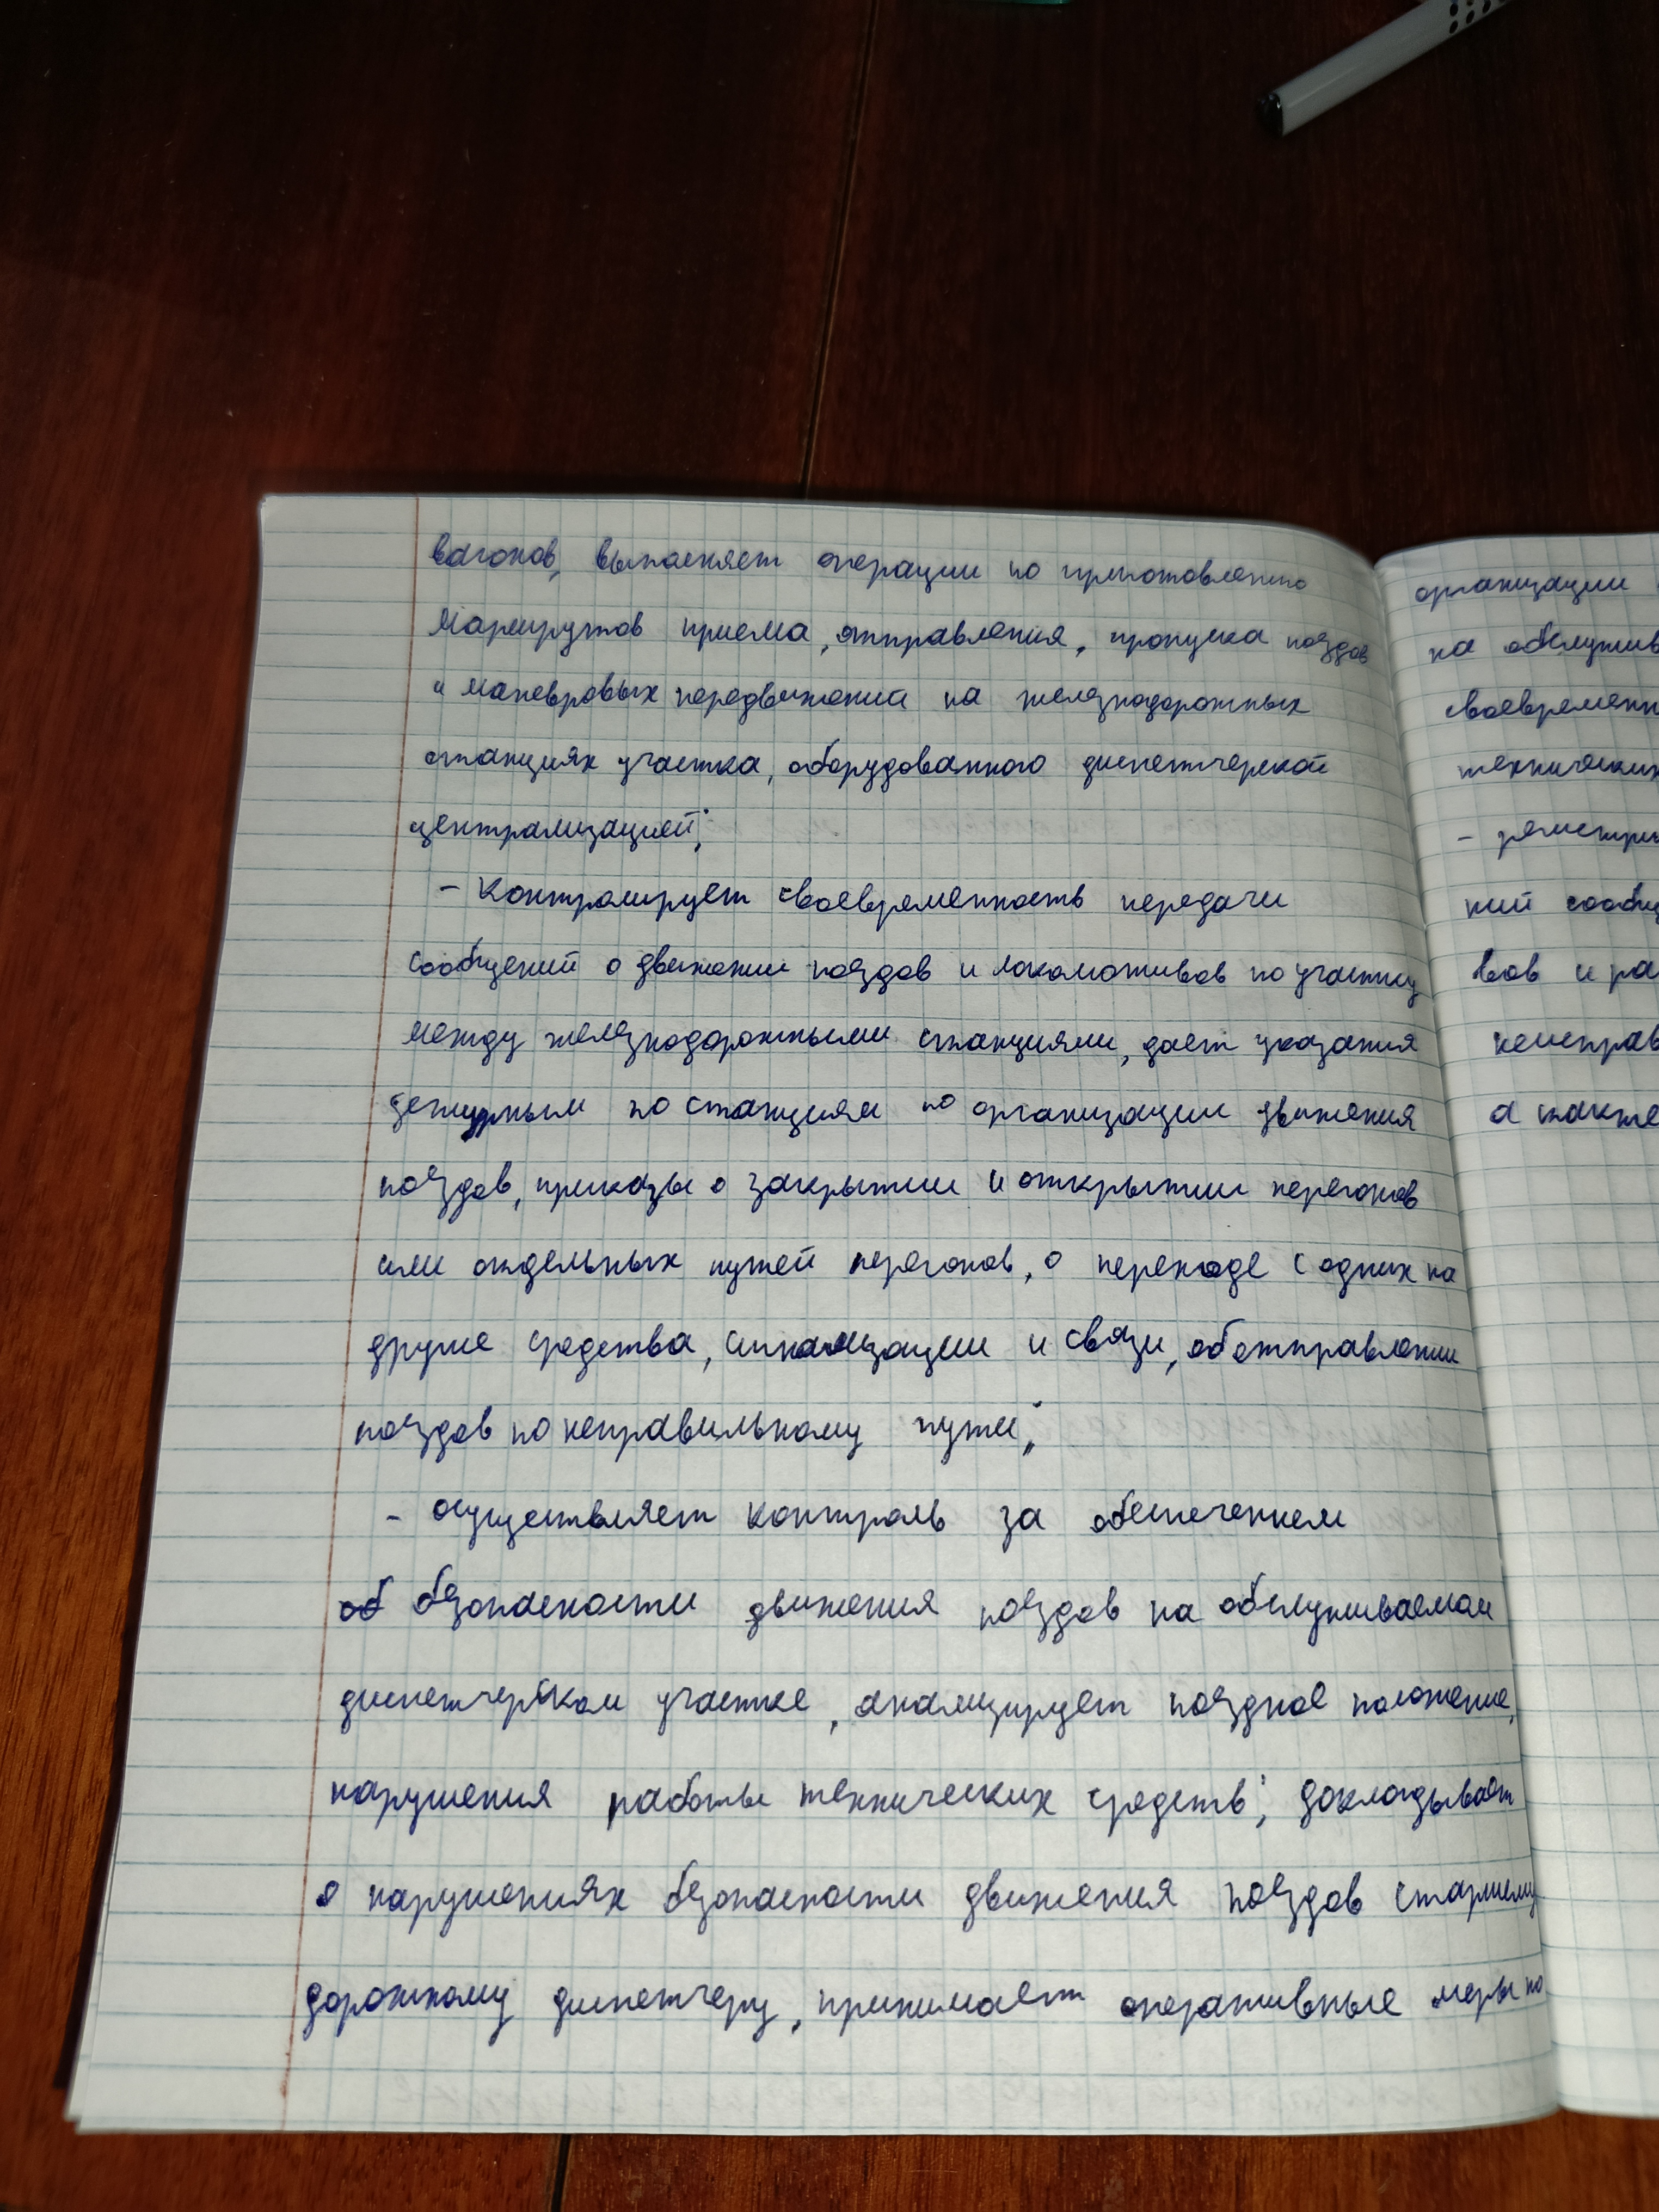 вагонов, выполняет операции по приготовлению
маршрутов приема, отправления, пропуска поездов
и маневровых передвижения на железнодорожных
станциях участка, оборудованного диспетчерской
централизацией;
- контролирует своевременность передачи
сообщений о движении поездов и локомотивов по участку
между железнодорожными станциями, дает указания
дежурным по станциям по организации движения
поездов, приказы о закрытии и открытии перегонов
или отдельных путей перегонов, о переходе с одних на
другие средства, сигнализации и связи, об отправлении
поездов по неправильному пути;
- осуществляет контроль за обеспечением
безопасности движения поездов на обслуживаемом
диспетчерском участке, анализирует поездное положение,
нарушения работы технических средств; докладывает
о нарушениях безопасности движения поездов старшему
дорожному диспетчеру, принимает оперативные меры по
организации
на обслужив
своевременн
технических
- регистри
ний сообщ
вов и ра
неисправ
а также